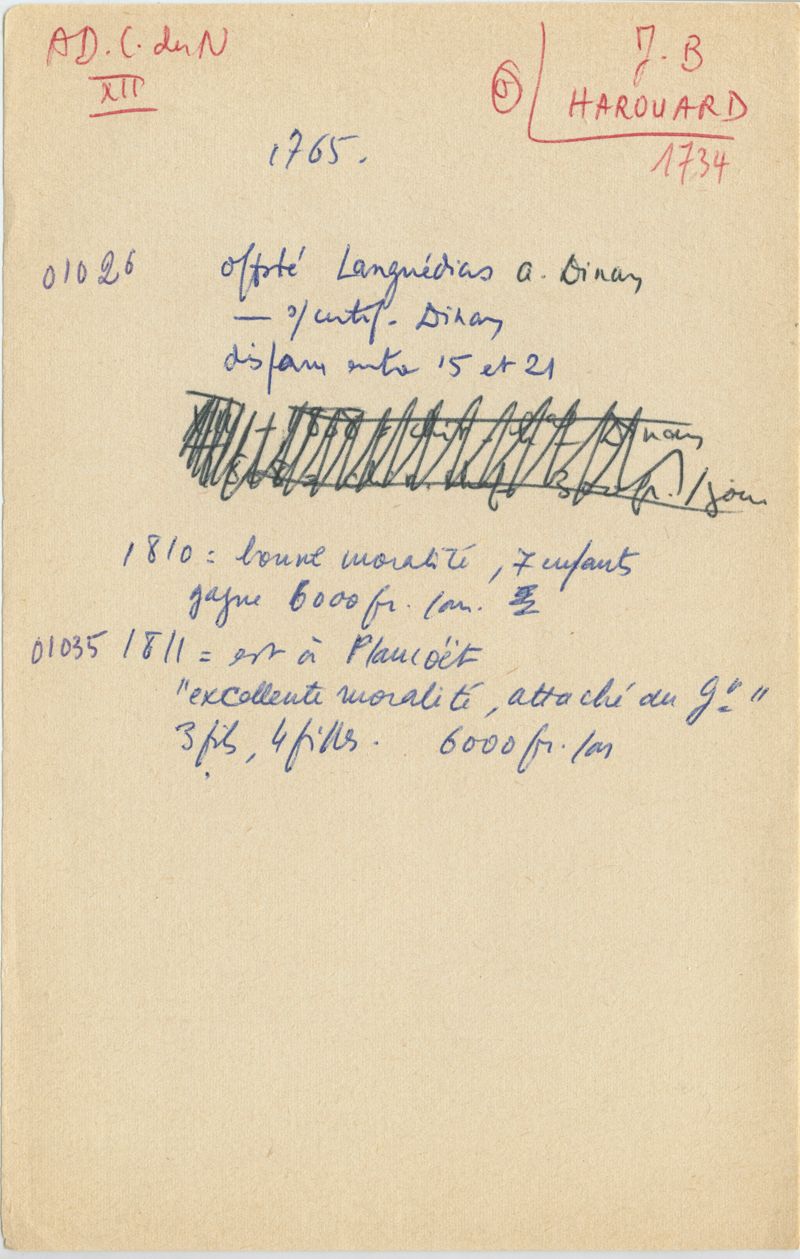 AD. C. du N
XII
J. B
HAROUARD
1734
1765.
01026 offsté Languédias a. Dinan
— s/certif. Dinan
disparu entre 15 et 21
Dinan
300 fr. / jour
1810 = bonne moralité, 7 enfants
gagne 6000 fr. /an.
01035 1811 = est à Plancoët
"excellente moralité, attaché au Gt"
3 fils, 4 filles. 6000 fr. /an